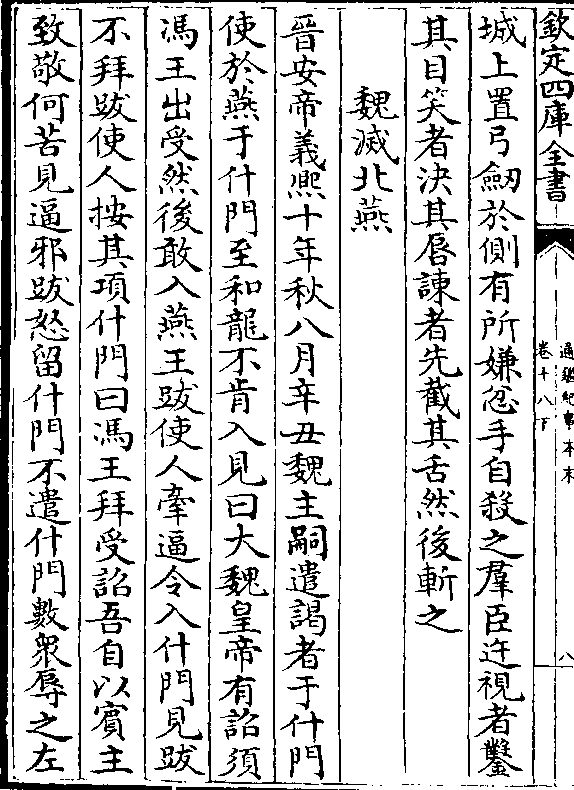 欽定四庫全書
通鑑紀事本末
卷十八下
八
城上置弓劒於側有所嫌忿手自殺之羣臣迕視者鑿
其目笑者決其唇諫者先截其舌然後斬之
魏滅北燕
晉安帝義熈十年秋八月辛丑魏主嗣遣謁者于什門
使於燕于什門至和龍不肯入見曰大魏皇帝有詔須
馮王出受然後敢入燕王跋使人牽逼令入什門見跋
不拜跋使人按其項什門曰馮王拜受詔吾自以賓主
致敬何苦見逼邪跋怒留什門不遣什門數衆辱之左